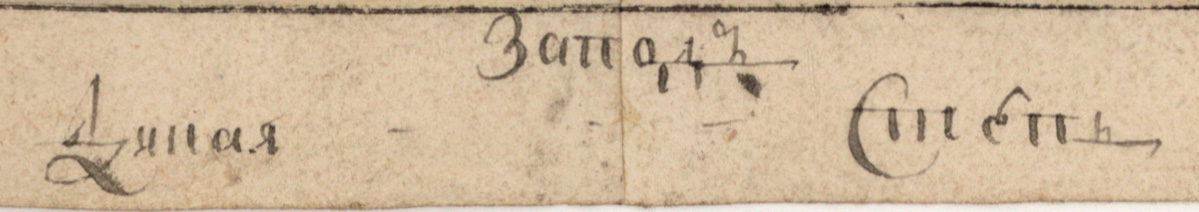 Западъ
Дикая - - - Степь